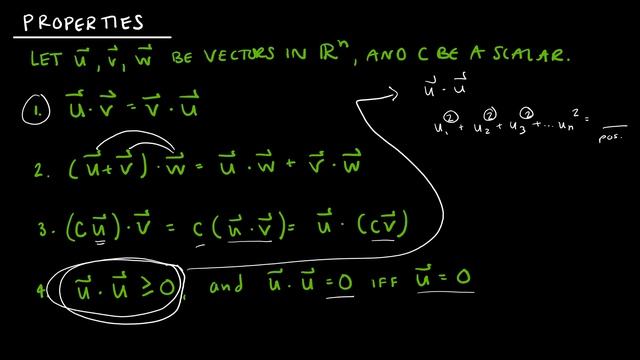 PROPERTIES
LET u⃗, v⃗, w⃗ BE VECTORS IN ℝⁿ, AND C BE A SCALAR.
1. u⃗ · v⃗ = v⃗ · u⃗
2. (u⃗ + v⃗) · w⃗ = u⃗ · w⃗ + v⃗ · w⃗
3. (c u⃗) · v⃗ = c (u⃗ · v⃗) = u⃗ · (c v⃗)
4. u⃗ · u⃗ ≥ 0, and u⃗ · u⃗ = 0 IFF u⃗ = 0
u⃗ · u⃗
u₁² + u₂² + u₃² + ... uₙ² =
pos.